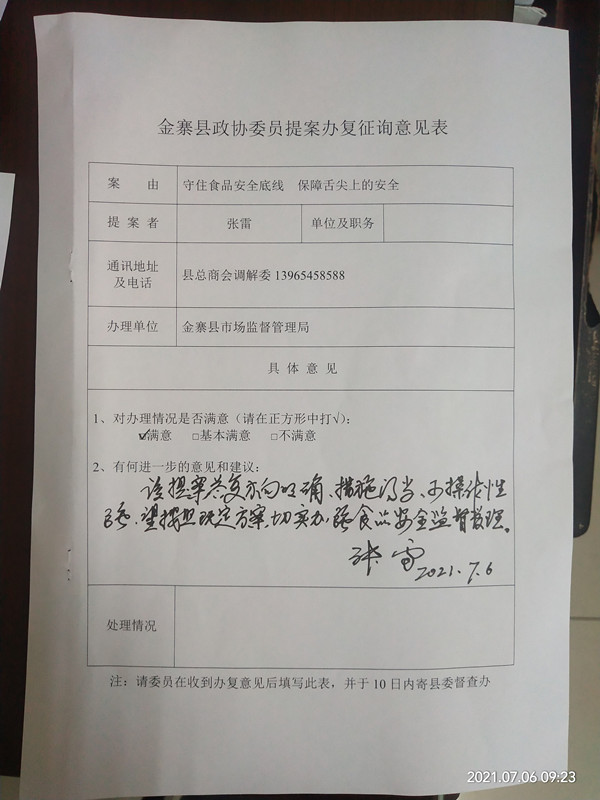 金寨县政协委员提案办复征询意见表
案 由 守住食品安全底线 保障舌尖上的安全
提 案 者 张雷 单位及职务
通讯地址
及电话 县总商会调解委 13965458588
办理单位 金寨县市场监督管理局
具 体 意 见
1、对办理情况是否满意（请在正方形中打√）：
☑满意 □基本满意 □不满意
2、有何进一步的意见和建议：
该提案答复方向明确、措施得当、可操作性
强，望按照既定方案，切实加强食品安全监督管理。
张雷
2021.7.6
处理情况
注：请委员在收到办复意见后填写此表，并于 10 日内寄县委督查办
2021.07.06 09:23